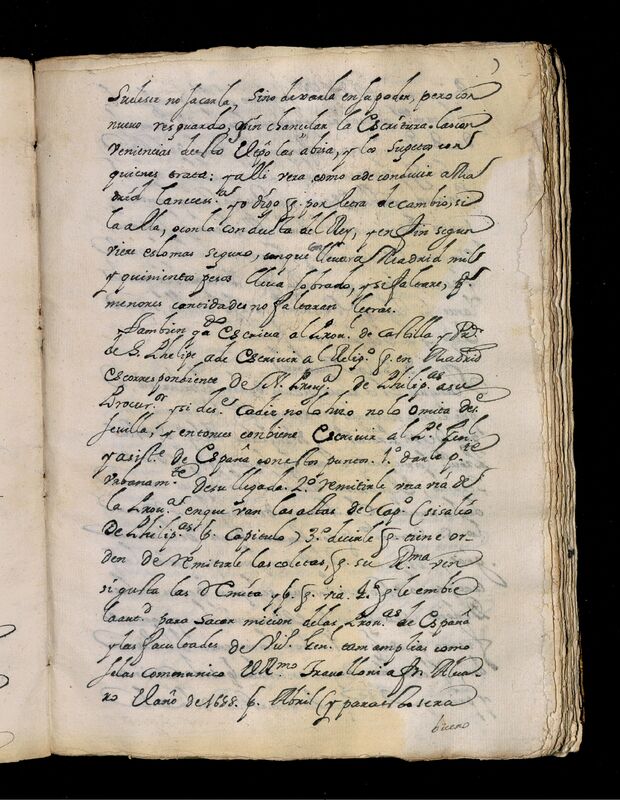 no sacarla, sino llevarla en su poder, pero con
nuevo resguardo, sin chancelar la Escritura. las con
veniencias de esto el tpō las abrira, y los sugetos con
quienes trata: y alli vera como a de conducir a Ma
drid y o digo q̃ por letra de cambio, si
la alla, o con la conducta del Rey, y en fin segun
viere es lo mas seguro, conque llevara a Madrid mil
y quinientos pesos lleva sobrado, y si faltare, pª
menores cantidades no faltaran letras.
Tambien qdo Escriva al Prou.l de Castilla y Pe
de S. Phelipe a de Escrivir al Relig.o q̃ en Madrid
es correspondiente de N. Prou.a de Philip.as a su
Procur.or y si desde Cadiz no lo hizo no lo omita desde
Sevilla, y entonces conviene Escrivir al
y asist.te de España con estos puntos. 1.o darle p.te
vrbanam.te de su llegada. 2.o remitirle via de
la Prou.a en que van las actas del Cap.o (si salio
de Philip.as p. Capitulo) 3.o decirle q̃ tiene or-
den de remitirle las coletas, q̃ su R.ma
si gusta las remita y p. q̃ via. 4.o q̃ le embie
la aut.d para sacar micion de las Prou.as de España
y las facultades de Vic. Gen. tam amplias como
se las communico el R.mo Travalloni a fr. Alva
ro el año de 1658. p. Abril (y para esto sera
bueno